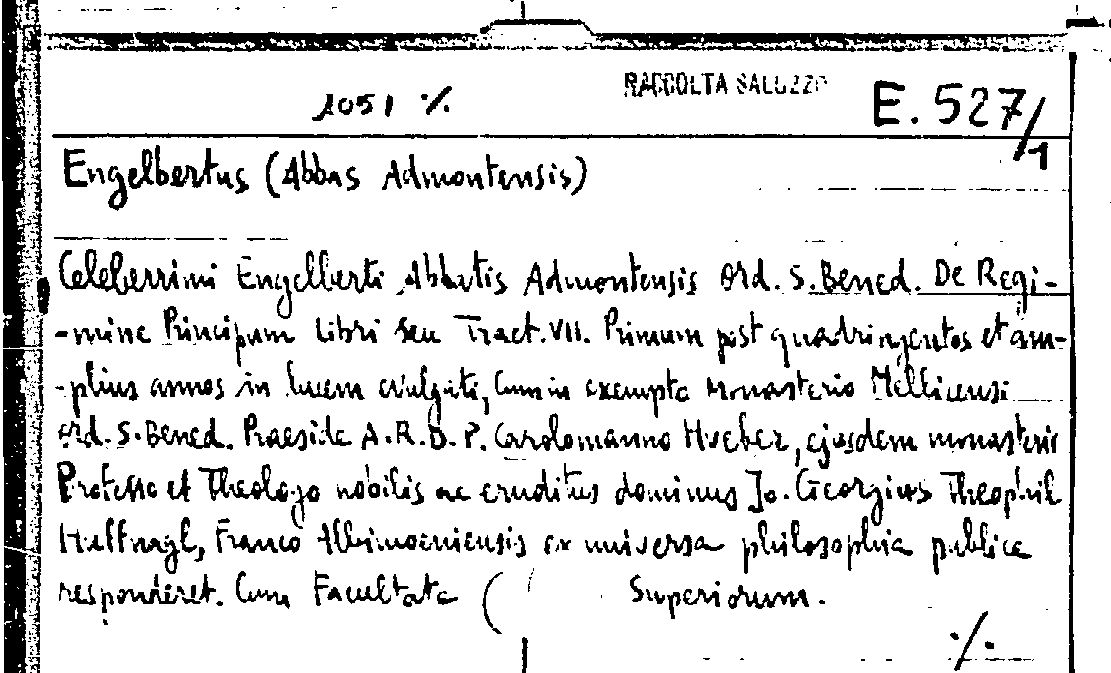 RACCOLTA SALUZZO
1051 ·/. E. 527/1
Engelbertus (Abbas Admontensis)
Celeberrimi Engelberti Abbatis Admontensis Ord. S. Bened. De Regi-
-mine Principum libri seu Tract. VII. Primum post quadringentos et am-
-plius annos in lucem evulgati, cum in exempto Monasterio Mellicensi
ord. S. Bened. Praeside A. R. D. P. Carolomanno Hueber, ejusdem monasterii
Professo et Theologo nobilis ac eruditus dominus Jo. Georgius Theophil
Huffnagl, Franco Albimoeniensis ex universa philosophia publice
responderet. Cum Facultate ( Superiorum.
·/.